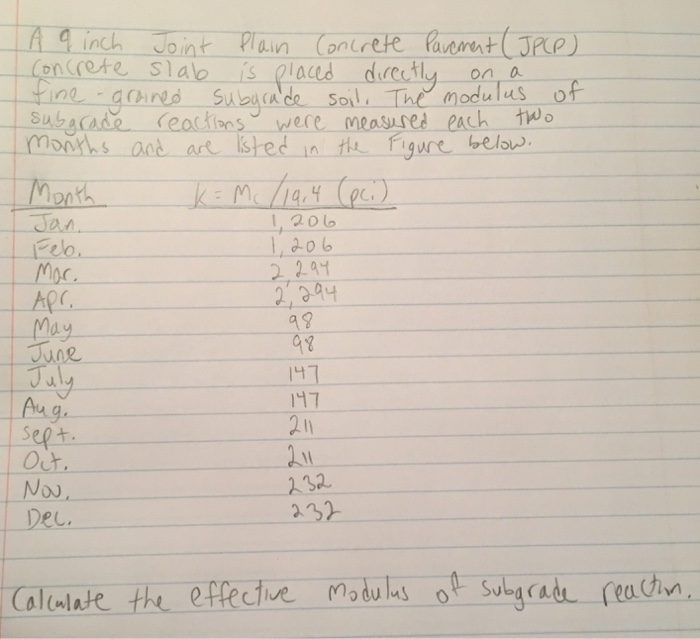 A 9 inch Joint Plain Concrete Pavement (JPCP)
Concrete slab is placed directly on a
fine-grained subgrade soil. The modulus of
subgrade reactions were measured each two
months and are listed in the Figure below.
Month k = Mc /19.4 (pci)
Jan. 1,206
Feb. 1,206
Mar. 2,294
Apr. 2,294
May 98
June 98
July 147
Aug. 147
Sept. 211
Oct. 211
Nov. 232
Dec. 232
Calculate the effective modulus of subgrade reaction.